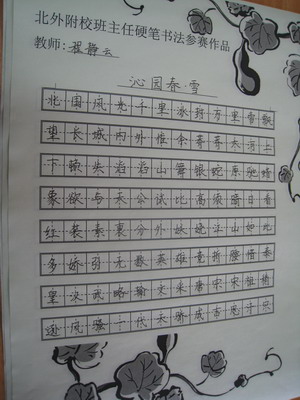 北外附校班主任硬笔书法参赛作品
教师：翟静云
沁园春·雪
北国风光千里冰封万里雪飘
望长城内外惟余莽莽大河上
下顿失滔滔山舞银蛇原驰蜡
象欲与天公试比高须晴日看
红装素裹分外妖娆江山如此
多娇引无数英雄竞折腰惜秦
皇汉武略输文采唐宗宋祖稍
逊风骚一代天骄成吉思汗只